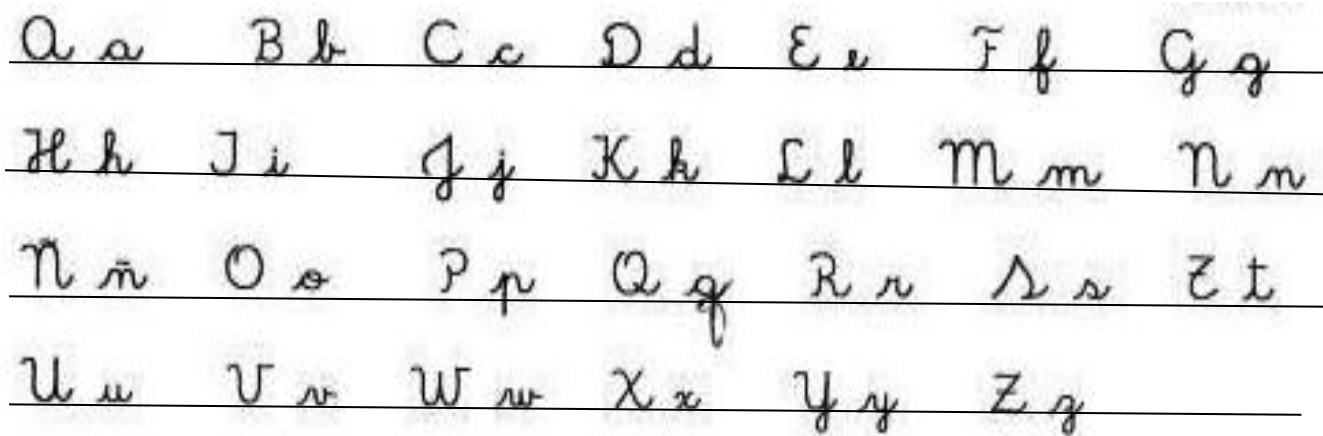 A a B b C c D d E e F f G g
H h I i J j K k L l M m N n
Ñ ñ O o P p Q q R r S s T t
U u V v W w X x Y y Z z